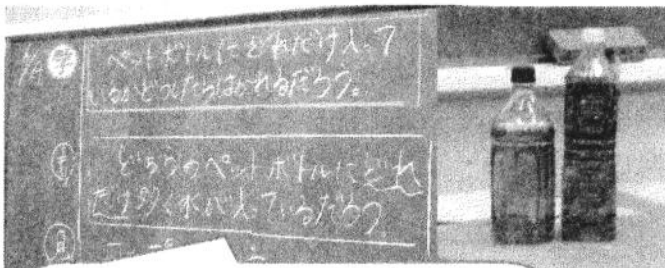 ペットボトルにどれだけ入って
いるかどうしたらはかれるだろう。
どちらのペットボトルにどれ
だけ多く水が入っているだろう